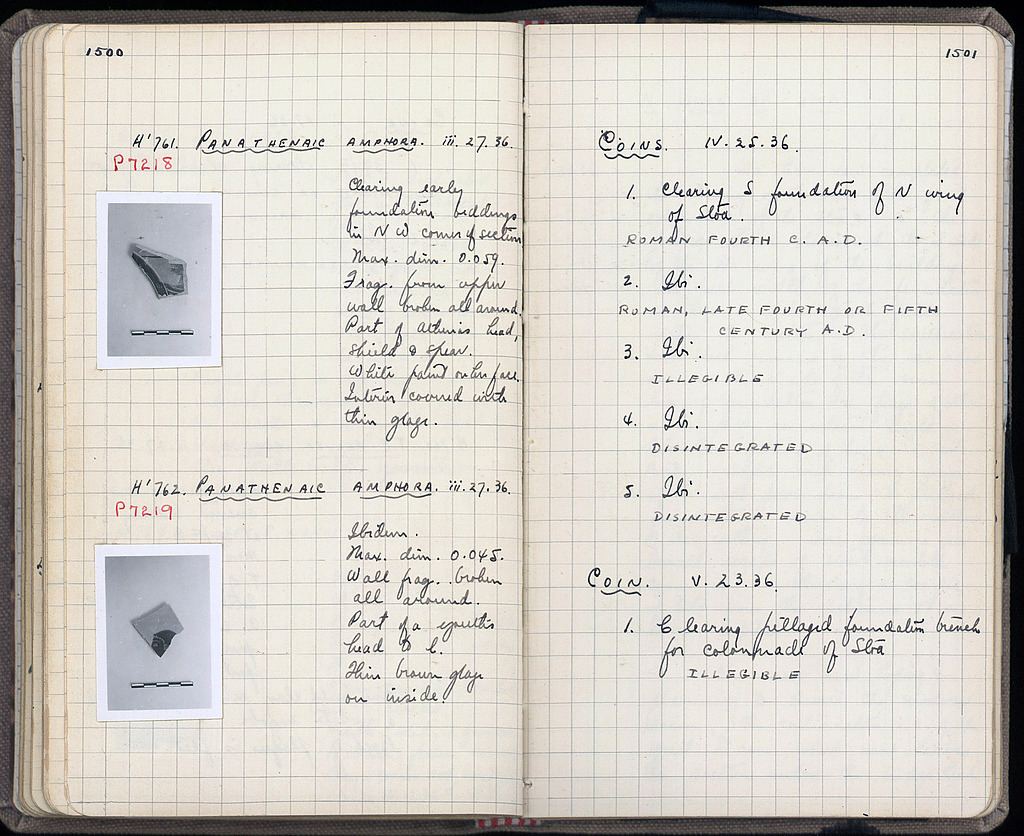 1500
H'761. PANATHENAIC AMPHORA. iii. 27. 36.
P7218
Clearing early
foundation beddings
in N W corner of section
Max. dim. 0.059.
Frag. from upper
wall broken all around.
Part of Athena's head,
shield & spear.
White paint on her face.
Interior covered with
thin glaze.
H'762. PANATHENAIC AMPHORA. iii. 27. 36.
P7219
Ibidem.
Max. dim. 0.045.
Wall frag. broken
all around.
Part of a youth's
head to l.
Thin brown glaze
on inside.
1501
COINS. IV. 25. 36.
1. Clearing S foundation of N wing
of Stoa.
ROMAN FOURTH C. A.D.
2. Ibi.
ROMAN, LATE FOURTH OR FIFTH
CENTURY A.D.
3. Ibi.
ILLEGIBLE
4. Ibi.
DISINTEGRATED
5. Ibi.
DISINTEGRATED
COIN. V. 23. 36.
1. Clearing pillaged foundation trench
for colonnade of Stoa
ILLEGIBLE